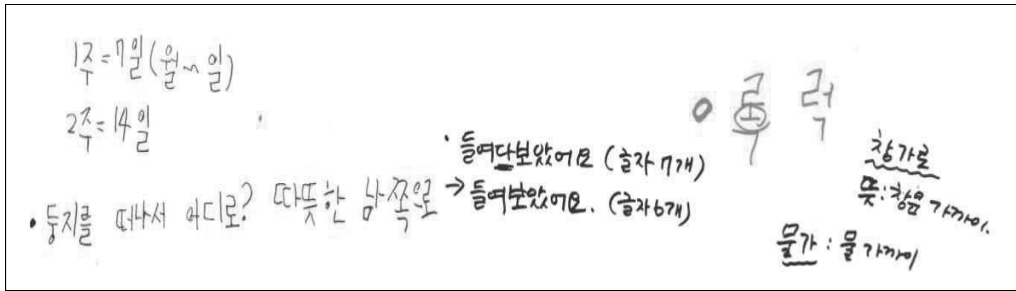 1주=7일(월~일)
2주=14일
• 둥지를 떠나서 어디로? 따뜻한 남쪽으로
• 들여다보았어요 (글자 7개)
→ 들여보았어요. (글자 6개)
창가로
뜻: 창문 가까이.
물가 : 물 가까이